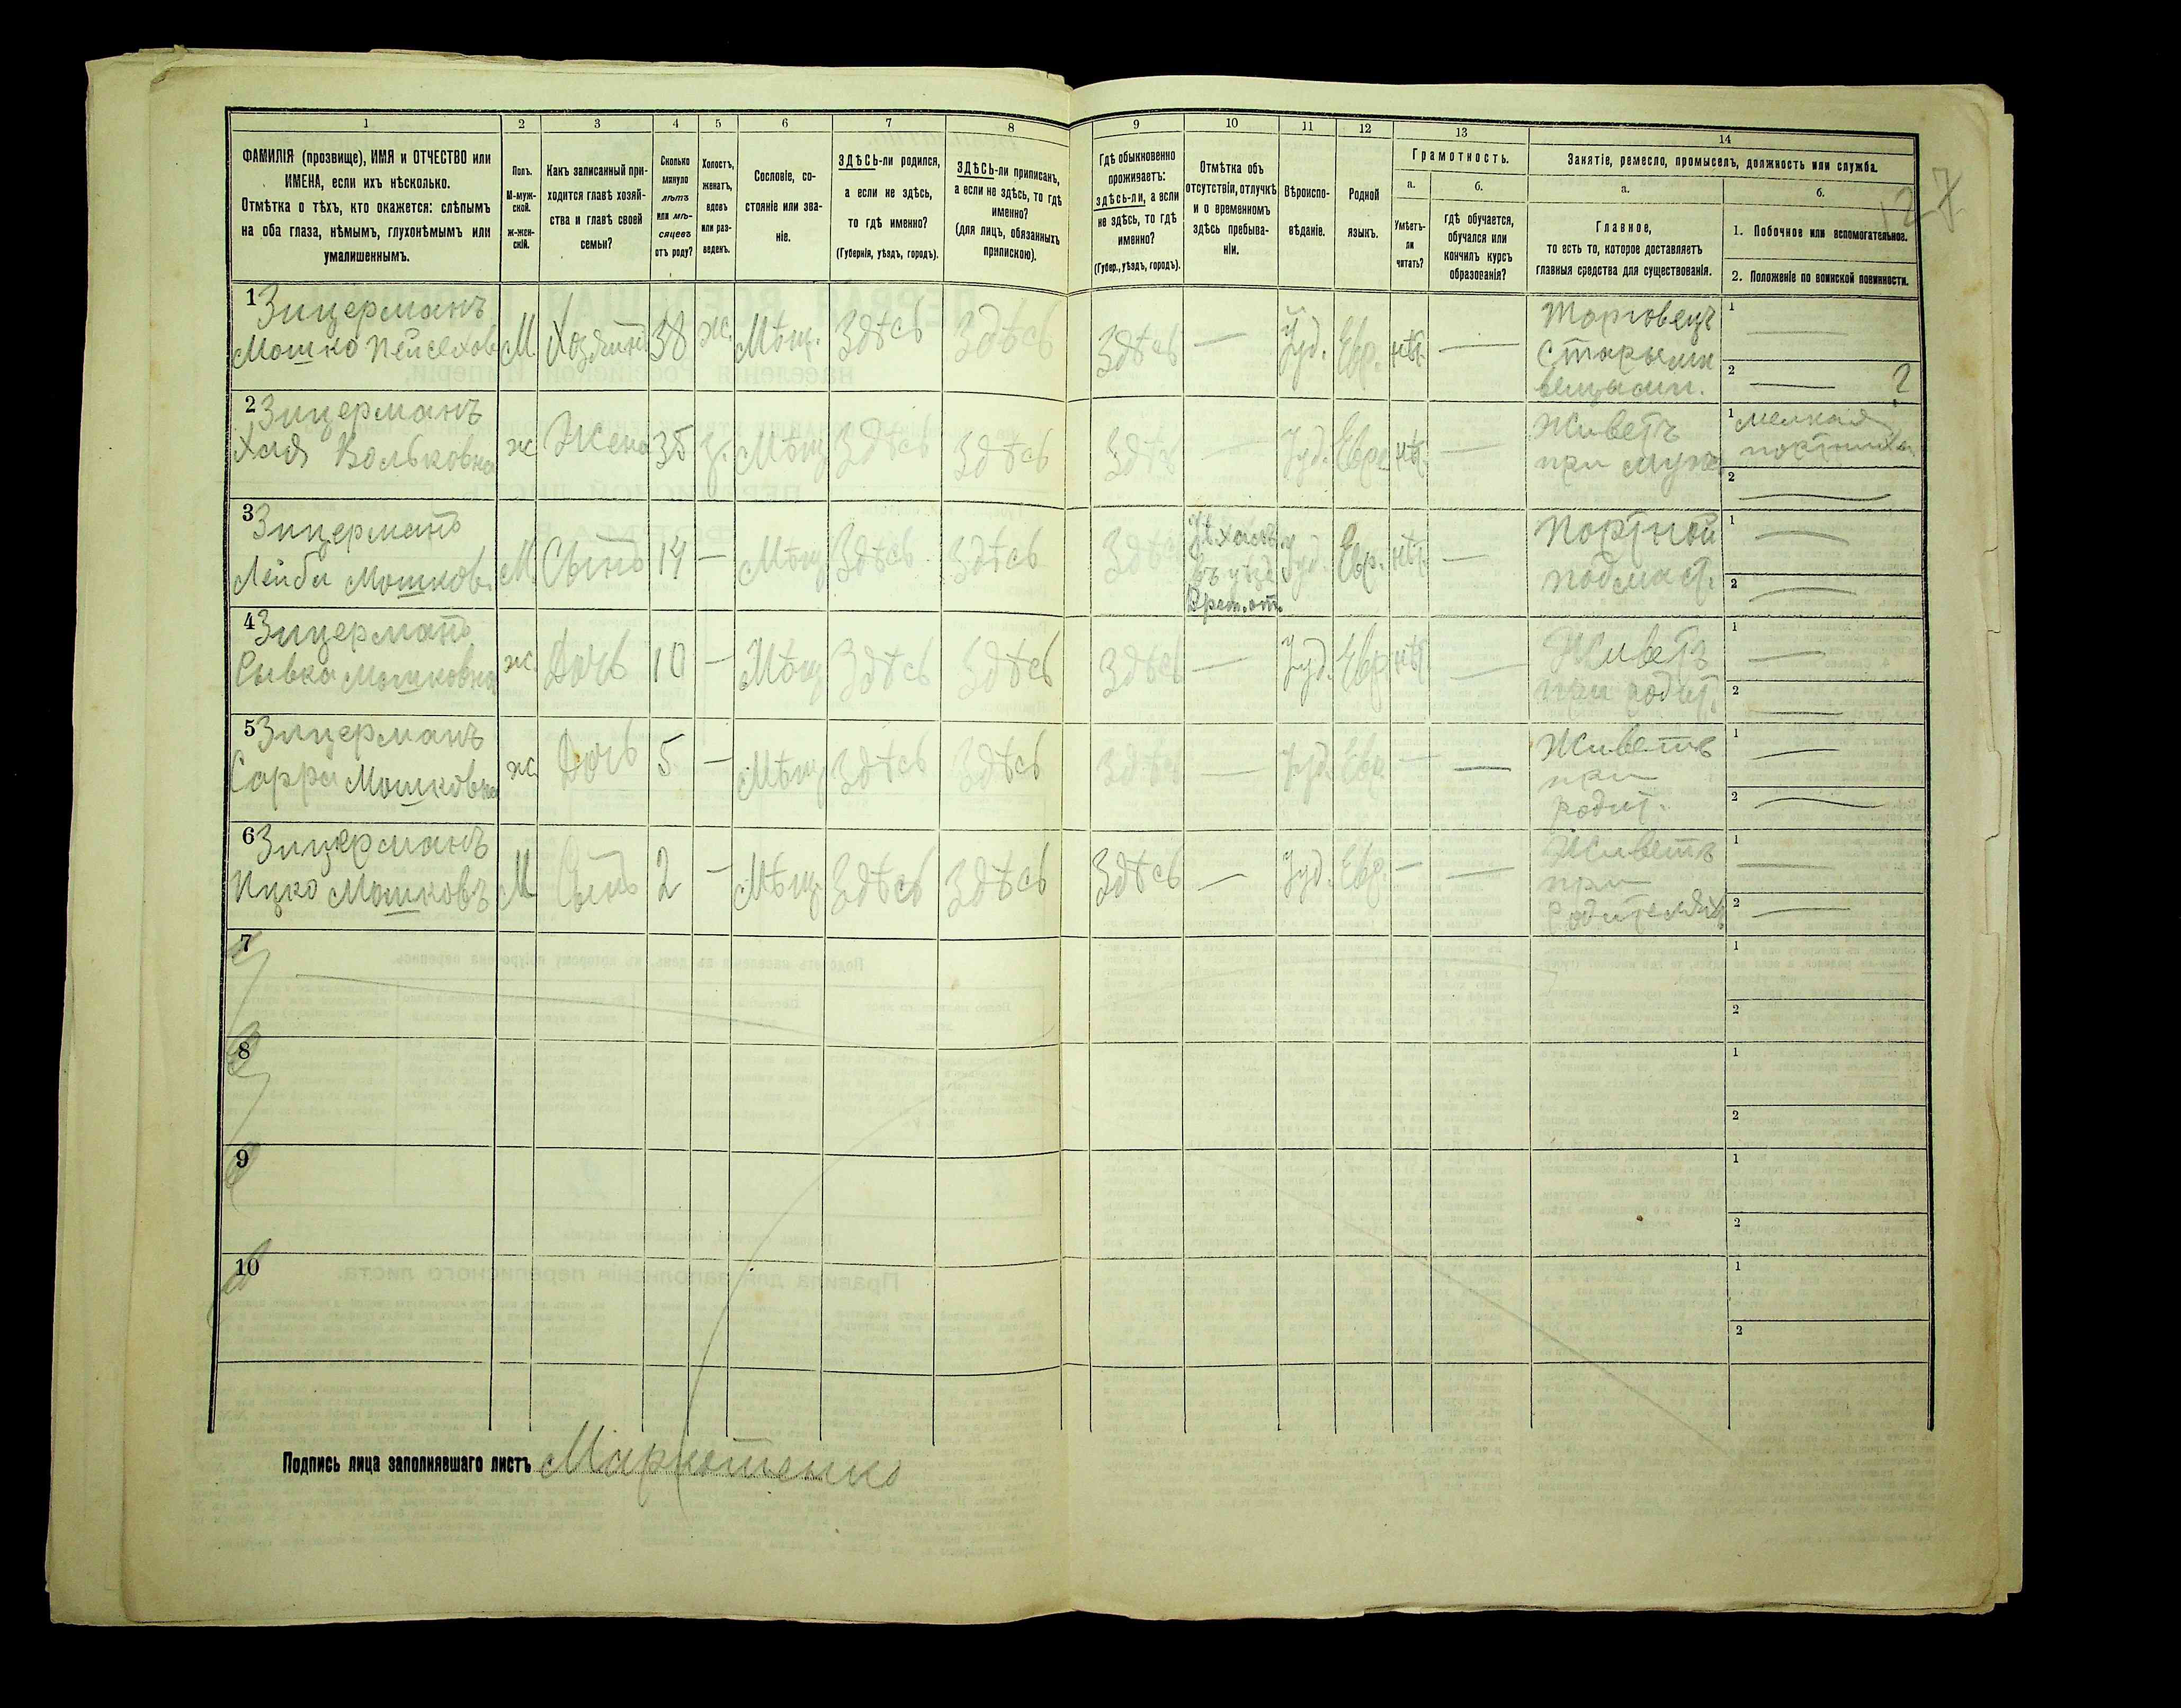 1 2 3 4 5 6 7 8 9 10 11 12 13 14
ФАМИЛІЯ (прозвище), ИМЯ и ОТЧЕСТВО или
ИМЕНА, если ихъ нѣсколько.
Отмѣтка о тѣхъ, кто окажется: слѣпымъ
на оба глаза, нѣмымъ, глухонѣмымъ или
умалишеннымъ.
Полъ.
М-муж-
ской.
Ж-жен-
скій.
Какъ записанный при-
ходится главѣ хозяй-
ства и главѣ своей
семьи?
Сколько
минуло
лѣтъ
или мѣ-
сяцевъ
отъ роду?
Холостъ,
женатъ,
вдовъ
или раз-
веденъ.
Сословіе, со-
стояніе или зва-
ніе.
ЗДѢСЬ-ли родился,
а если не здѣсь,
то гдѣ именно?
(Губернія, уѣздъ, городъ).
ЗДѢСЬ-ли приписанъ,
а если не здѣсь, то гдѣ
именно?
(для лицъ, обязанныхъ
припискою).
Гдѣ обыкновенно
проживаетъ:
здѣсь-ли, а если
не здѣсь, то гдѣ
именно?
(Губер., уѣздъ, городъ).
Отмѣтка объ
отсутствіи, отлучкѣ
и о временномъ
здѣсь пребыва-
ніи.
Вѣроиспо-
вѣданіе.
Родной
языкъ.
Грамотность.
а.
Умѣетъ-
ли
читать?
б.
гдѣ обучается,
обучался или
кончилъ курсъ
образованія?
Занятіе, ремесло, промыселъ, должность или служба.
а.
Главное,
то есть то, которое доставляетъ
главныя средства для существованія.
б.
1. Побочное или вспомогательное.
2. Положеніе по воинской повинности.
127
1 Зицерманъ
Мошко Пейсахов М. Хозяинъ 38 ж. Мѣщ. Здѣсь Здѣсь Здѣсь — Іуд. Евр. нѣт. — Торговецъ
старыми
вещами.
1 —
2 — ?
2 Зицерманъ
Хая Вольковна ж Жена 35 з. Мѣщ Здѣсь Здѣсь Здѣсь — Іуд. Евр. нѣт. — Живетъ
при мужѣ
1 мелкая
портниха
2 —
3 Зицерманъ
Лейба Мошков. М. Сынъ 14 — Мѣщ Здѣсь Здѣсь Здѣсь
въ уѣзд
Врем. от.
Іуд. Евр. нѣт. — Портной
подмаст.
1 —
2 —
4 Зицерманъ
Сывка Мошковна ж. Дочь 10 — Мѣщ Здѣсь Здѣсь Здѣсь — Іуд. Евр нѣт. — Живетъ
при родит.
1 —
2 —
5 Зицерманъ
Сарра Мошковна ж. Дочь 5 — Мѣщ Здѣсь Здѣсь Здѣсь — Іуд. Евр. — — Живетъ
при
родит.
1 —
2 —
6 Зицерманъ
Ицко Мошковъ М Сынъ 2 — Мѣщ Здѣсь Здѣсь Здѣсь — Іуд. Евр. — — Живетъ
при
родителяхъ
1 —
2 —
7
1
2
8
1
2
9
1
2
10
1
2
Подпись лица заполнявшаго листъ